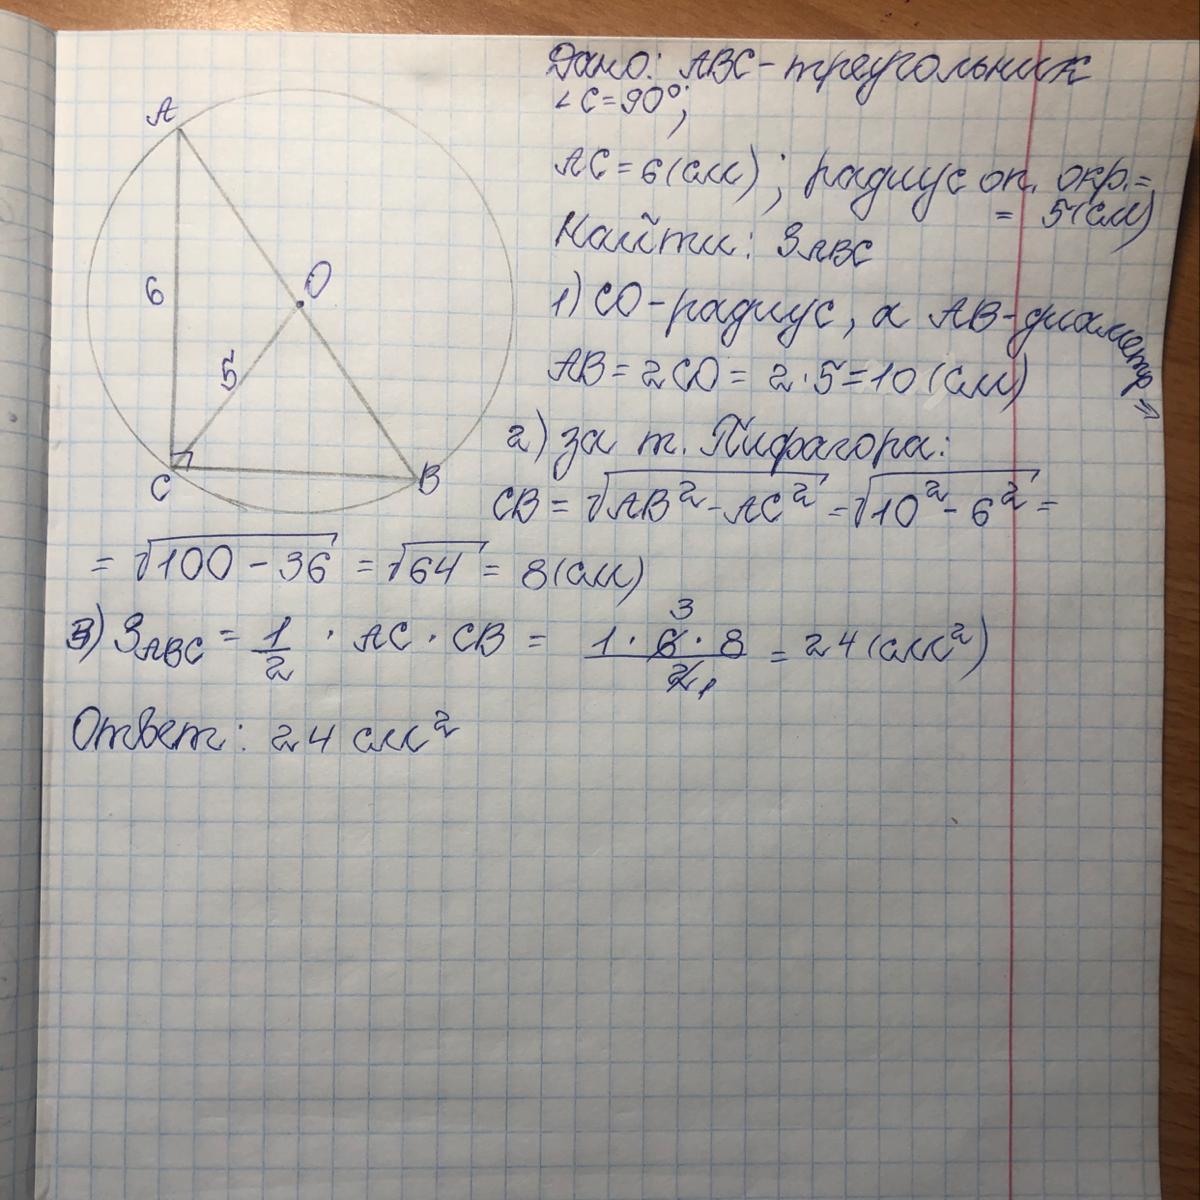 A
O
6
5
C
B
Дано: ABC-треугольник
∠C=90°;
AC=6(см); радиус оп. окр.=
= 5(см)
Найти: SABC
1) CO-радиус, а AB-диаметр ⇒
AB = 2CO = 2·5=10(см)
2) за т. Пифагора:
CB = √AB²-AC² = √10²-6² =
= √100-36 = √64 = 8(см)
3) SABC = 1/2 · AC · CB = 1·6·8/2 = 24(см²)
3
1
Ответ: 24 см²